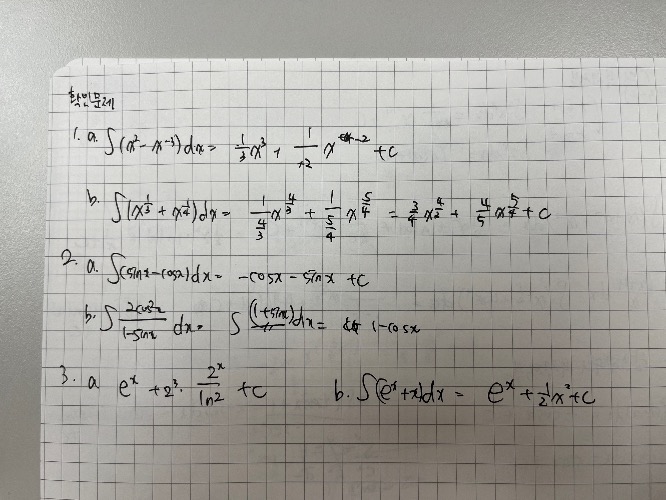 확인문제
1. a. ∫(x² - x⁻³)dx = 1/3 x³ + 1/+2 x⁻² + C
b. ∫(x^(1/3) + x^(1/4))dx = 1/(4/3) x^(4/3) + 1/(5/4) x^(5/4) = 3/4 x^(4/3) + 4/5 x^(5/4) + C
2. a. ∫(sinx - cosx)dx = -cosx - sinx + C
b. ∫ 2cos²x/(1-sinx) dx = ∫ (1+sinx)dx = 1-cosx
3. a e^x + 2³· 2^x/ln2 + C b. ∫(e^x + x)dx = e^x + 1/2 x² + C